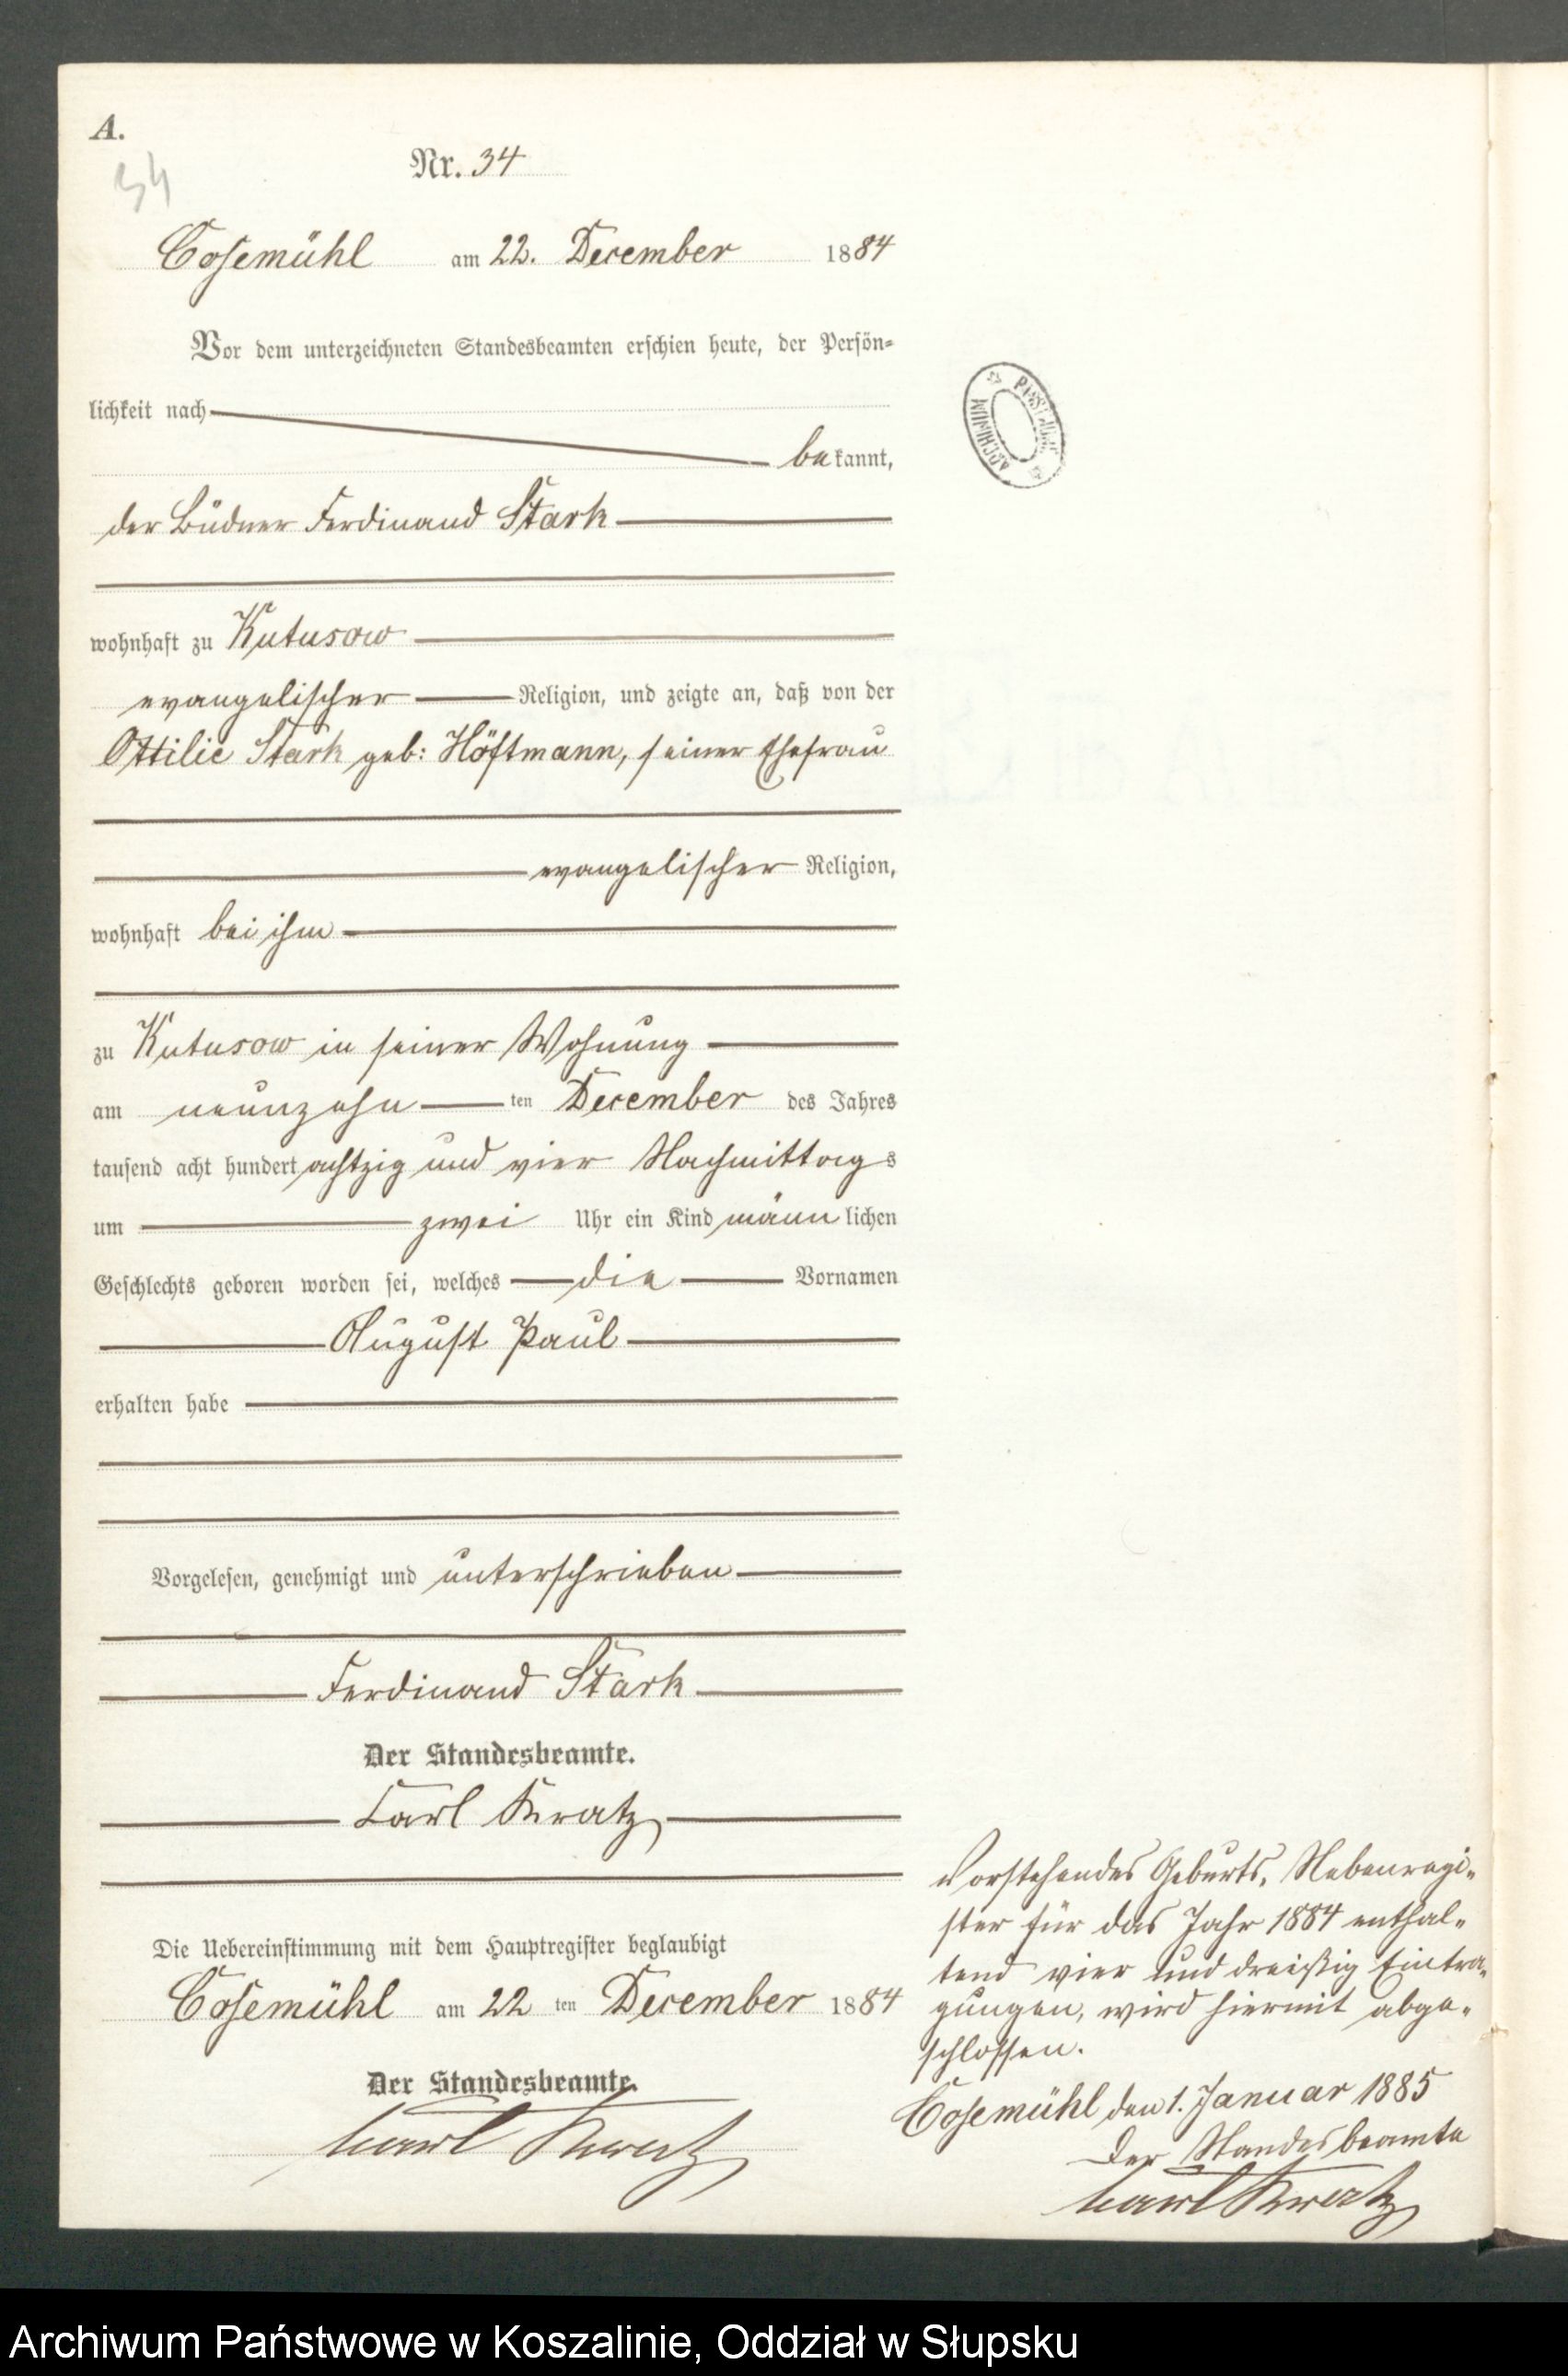 A.
34
Nr. 34
Cosemühl am 22. December 1884
Vor dem unterzeichneten Standesbeamten erschien heute, der Persön-
lichkeit nach
bekannt,
der Büdner Ferdinand Stark
wohnhaft zu Kutusow
evangelischer Religion, und zeigte an, daß von der
Ottilie Stark geb: Höftmann, seiner Ehefrau
evangelischer Religion,
wohnhaft bei ihm
zu Kutusow in seiner Wohnung
am neunzehnten December des Jahres
tausend acht hundert achtzig und vier Nachmittags
um zwei Uhr ein Kind männlichen
Geschlechts geboren worden sei, welches die Vornamen
August Paul
erhalten habe
Vorgelesen, genehmigt und unterschrieben
Ferdinand Stark
Der Standesbeamte.
Carl Kratz
Die Uebereinstimmung mit dem Hauptregister beglaubigt
Cosemühl am 22 ten December 1884
Der Standesbeamte.
Carl Kratz
Vorstehendes Geburts-Nebenregi-
ster für das Jahr 1884 enthal-
tend vier und dreißig Eintra-
gungen, wird hiermit abge-
schlossen.
Cosemühl den 1. Januar 1885
Der Standesbeamte
Carl Kratz
Archiwum Państwowe w Koszalinie, Oddział w Słupsku